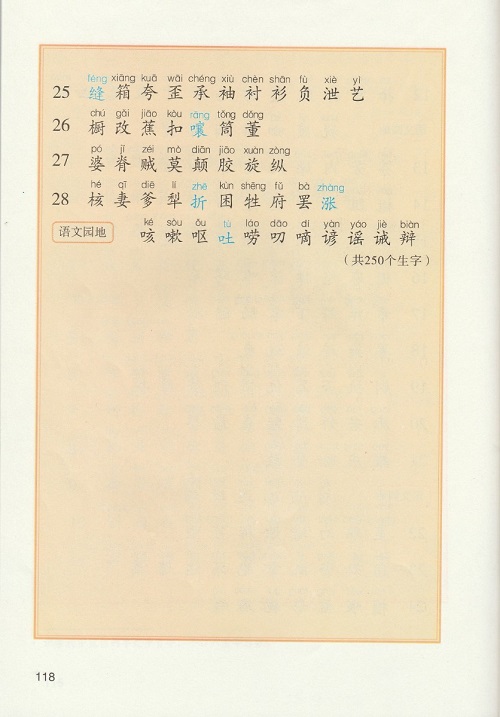 féng xiāng kuā wāi chéng xiù chèn shān fù xiè yì
25 缝 箱 夸 歪 承 袖 衬 衫 负 泄 艺
chú gǎi jiāo kòu rāng tǒng dǒng
26 橱 改 蕉 扣 嚷 筒 董
pó jǐ zéi mò diān jiāo xuán zòng
27 婆 脊 贼 莫 颠 胶 旋 纵
hé qī diē lí zhē kùn shēng fǔ bà zhàng
28 核 妻 爹 犁 折 困 牲 府 罢 涨
ké sòu ǒu tù láo dāo dí yàn yáo jiè biàn
语文园地 咳 嗽 呕 吐 唠 叨 嘀 谚 谣 诫 辩
（共250个生字）
118